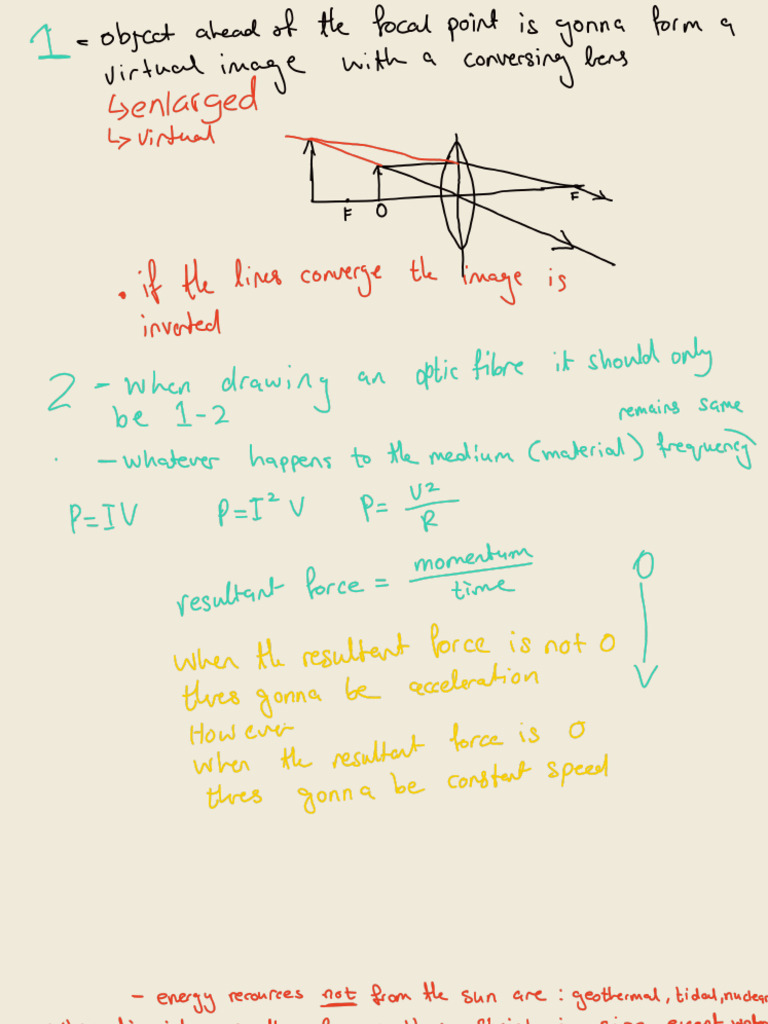 1 - object ahead of the focal point is gonna form a
virtual image with a conversing lens
↳enlarged
↳virtual
F O F
• if the lines converge the image is
inverted
2 - when drawing an optic fibre it should only
be 1-2
remains same
- whatever happens to the medium (material) frequency
P=IV P=I²V P=V²/R
resultant force = momentum/time
O
V
when the resultant force is not 0
thres gonna be acceleration
However
when the resultant force is 0
thres gonna be constant speed
- energy recources not from the sun are : geothermal, tidal, nuclear